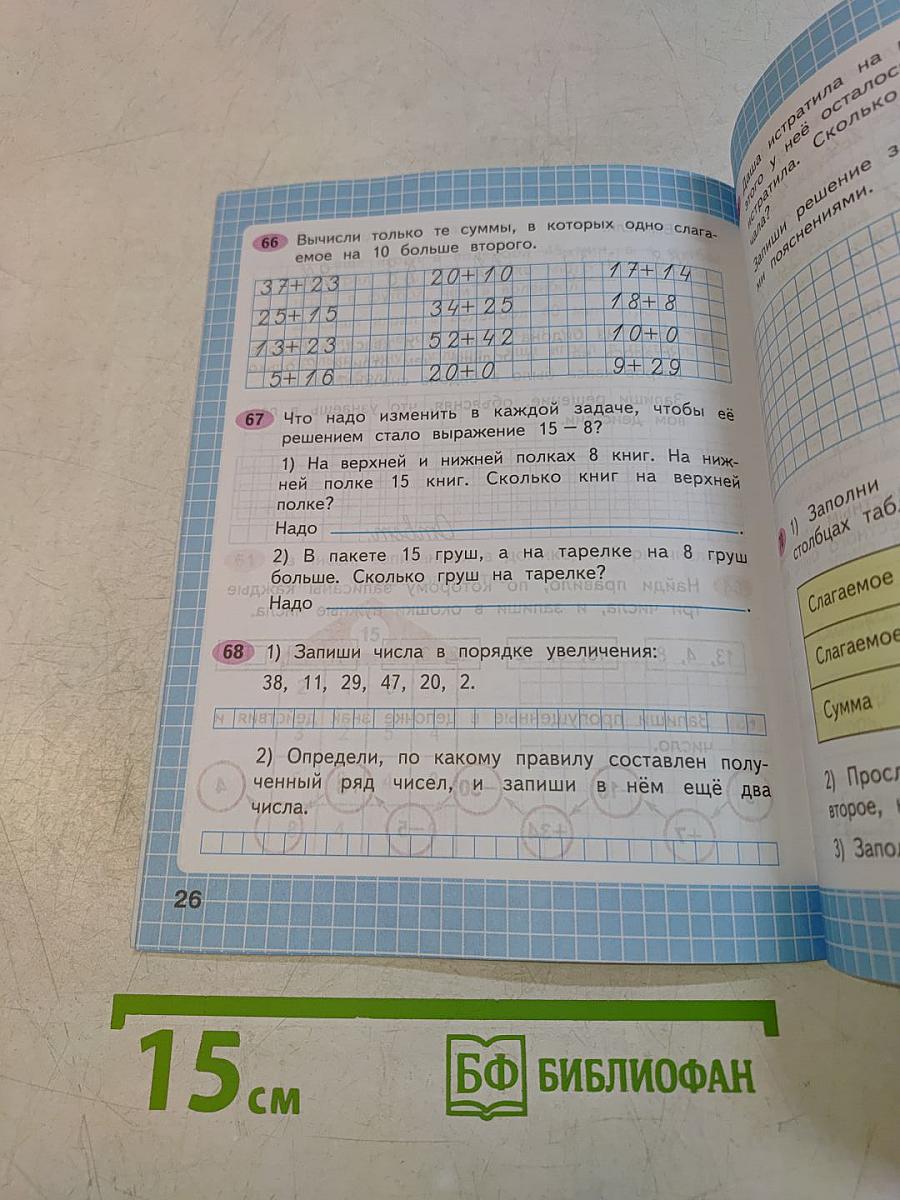 66 Вычисли только те суммы, в которых одно слага-
емое на 10 больше второго.
37+23 20+10 17+14
25+15 34+25 18+8
13+23 52+42 10+0
5+16 20+0 9+29
67 Что надо изменить в каждой задаче, чтобы её
решением стало выражение 15 – 8?
1) На верхней и нижней полках 8 книг. На ниж-
ней полке 15 книг. Сколько книг на верхней
полке?
Надо
2) В пакете 15 груш, а на тарелке на 8 груш
больше. Сколько груш на тарелке?
Надо
68 1) Запиши числа в порядке увеличения:
38, 11, 29, 47, 20, 2.
2) Определи, по какому правилу составлен полу-
ченный ряд чисел, и запиши в нём ещё два
числа.
26
Даша истратила на
этого у неё осталось
истратила. Сколько
Запиши решение
ми пояснениями.
1) Заполни
столбцах
Слагаемое
Слагаемое
Сумма
2)
второе,
3)
15 см
БФ БИБЛИОФАН